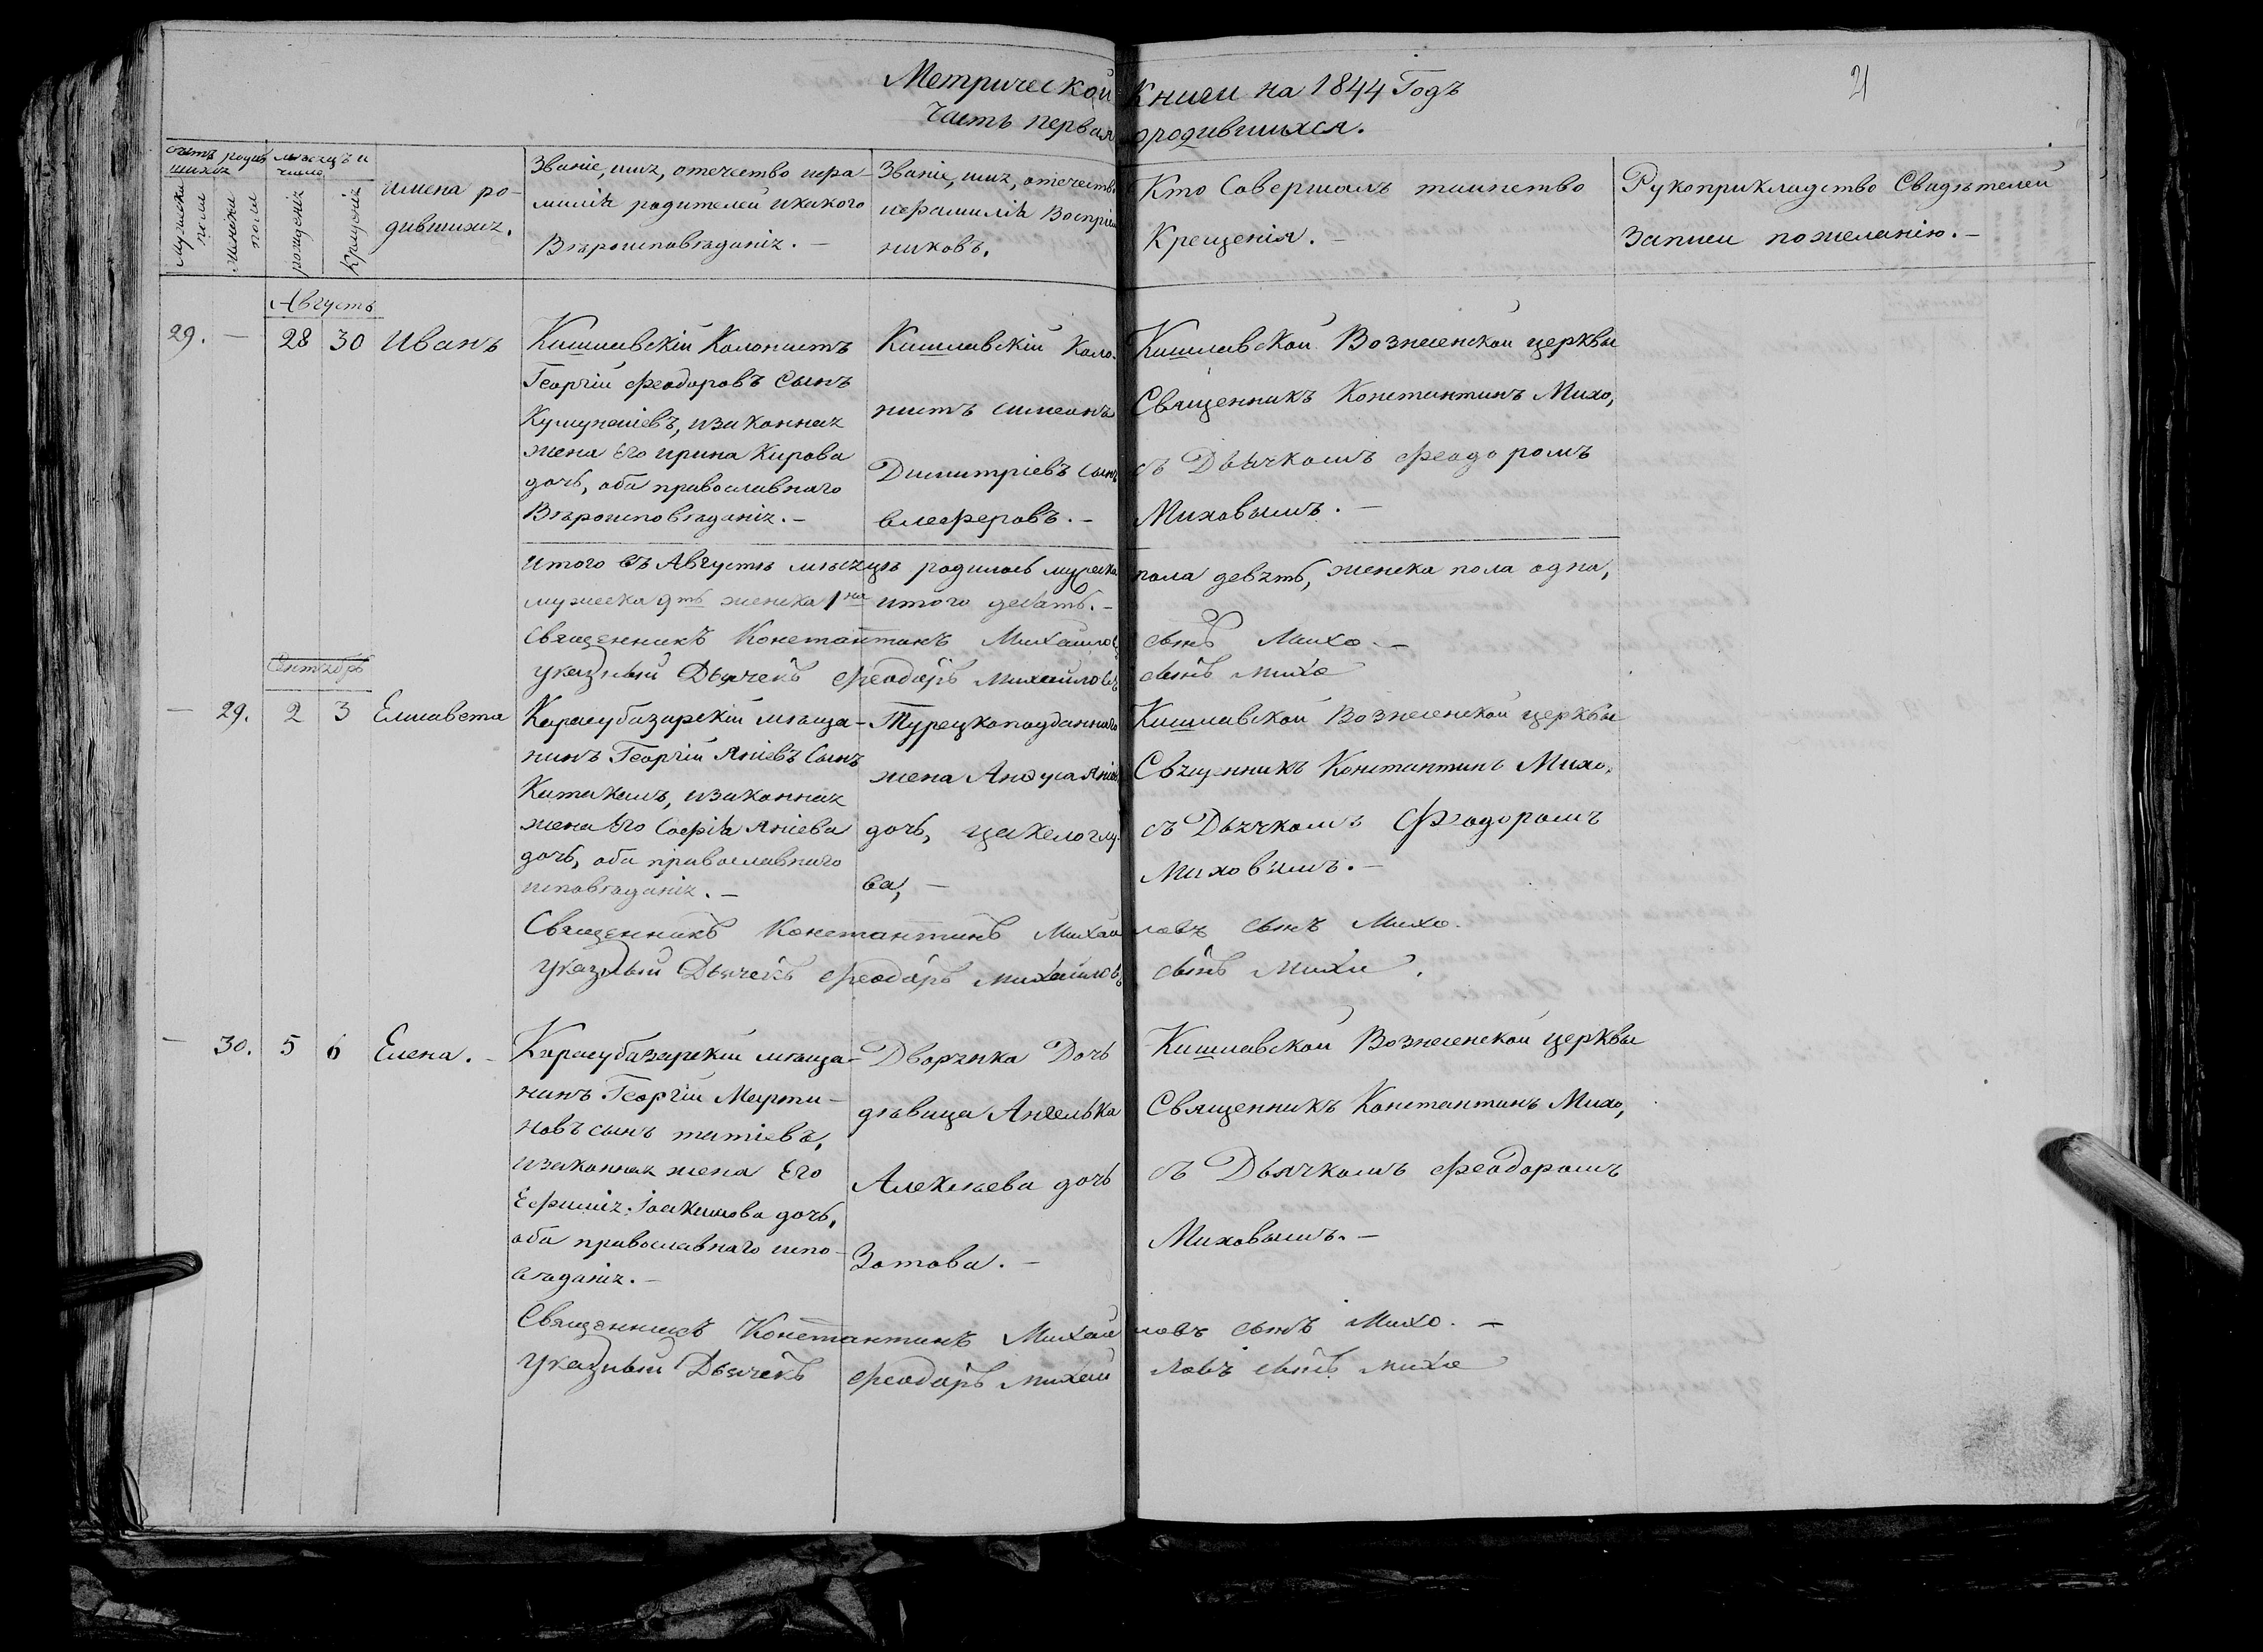 Метрической Книги на 1844 Годъ
21
Часть первая ородившихся.
счетъ родив
шихся
мѣсяцъ и
число
мужеска
пола
женска
пола
рожденія
крещенія
имена ро-
дившихся.
Званіе, имя, отечество ифа-
милія родителей икакого
Вѣроисповѣданія. —
Званіе, имя, отечество
ифамилія Воспріем
никовъ.
Кто Совершалъ таинство
Крещенія. —
Рукоприкладство Свидѣтелей
записи пожеланію. —
Августъ
29. — 28 30 Иванъ
Кишлавскій Колонистъ
Георгій Феодоровъ Сынъ
изаконная
жена Его ирина Кирова
дочь, оба православнаго
Вѣроисповѣданія. —
Кишлавскій Коло-
нистъ симеонъ
Димитріевъ сынъ
влеферовъ. —
Кишлавской Вознесенской церквы
Священникъ Константинъ Михо,
съ Дьячкомъ Феодоромъ
Миховымъ. —
итого въ Августѣ мѣсяцѣ родилось мужеска пола девять, женска пола одна,
мужеска 9ть женска 1на итого девать. —
священникъ Константинъ Михаилов сынъ Михо —
указный Дьячекъ Феодоръ Михаиловъ сынъ михо
Сентябрь
— 29. 2 3 Елисавета
Карасубазарскій мѣща-
нинъ Георгій Яніевъ Сынъ
изаконная
жена Его Софія Яніева
дочь, оба православнаго
исповѣданія. —
Турецкоподданнаго
жена Яніев
дочь, цакелоглу
ва, —
Кишлавской Вознесенской церквы
Священникъ Константинъ Михо,
съ Дьячкомъ Феодоромъ
Миховымъ. —
Священникъ Константинъ Михаи ловъ сынъ Михо.
указный Дьячекъ Феодоръ михаиловъ сынъ михо.
— 30. 5 6 Елена. —
Карасубазарскій мѣща-
нинъ Георгій Марти-
новъ сынъ татіевъ,
изаконная жена Его
Ефимія Іоакимова дочь,
оба православнаго испо-
вѣданія. —
Дворянка Дочь
дѣвица Ангелька
Алексѣева дочь
Зотова. —
Кишлавской Вознесенской церквы
Священникъ Константинъ Михо,
съ Дьячкомъ Феодоромъ
Миховымъ. —
Священникъ Константинъ Михаи ловъ сынъ Михо. —
указный Дьячекъ Феодоръ михаи ловъ сынъ михо